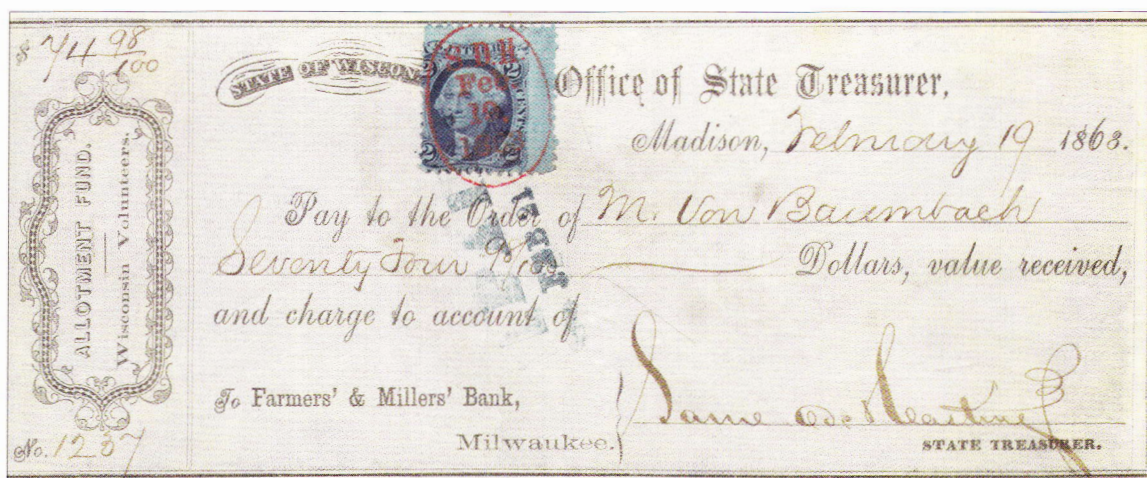 $ 74 98/100
ALLOTMENT FUND.
Wisconsin Volunteers.
No. 1237
STATE OF WISCON
Office of State Treasurer,
Madison, February 19 1863.
Pay to the Order of M. Von Baumbach
Seventy Four 98/100 Dollars, value received,
and charge to account of
To Farmers' & Millers' Bank,
Milwaukee.
STATE TREASURER.
2 CENTS 2
Feb
19